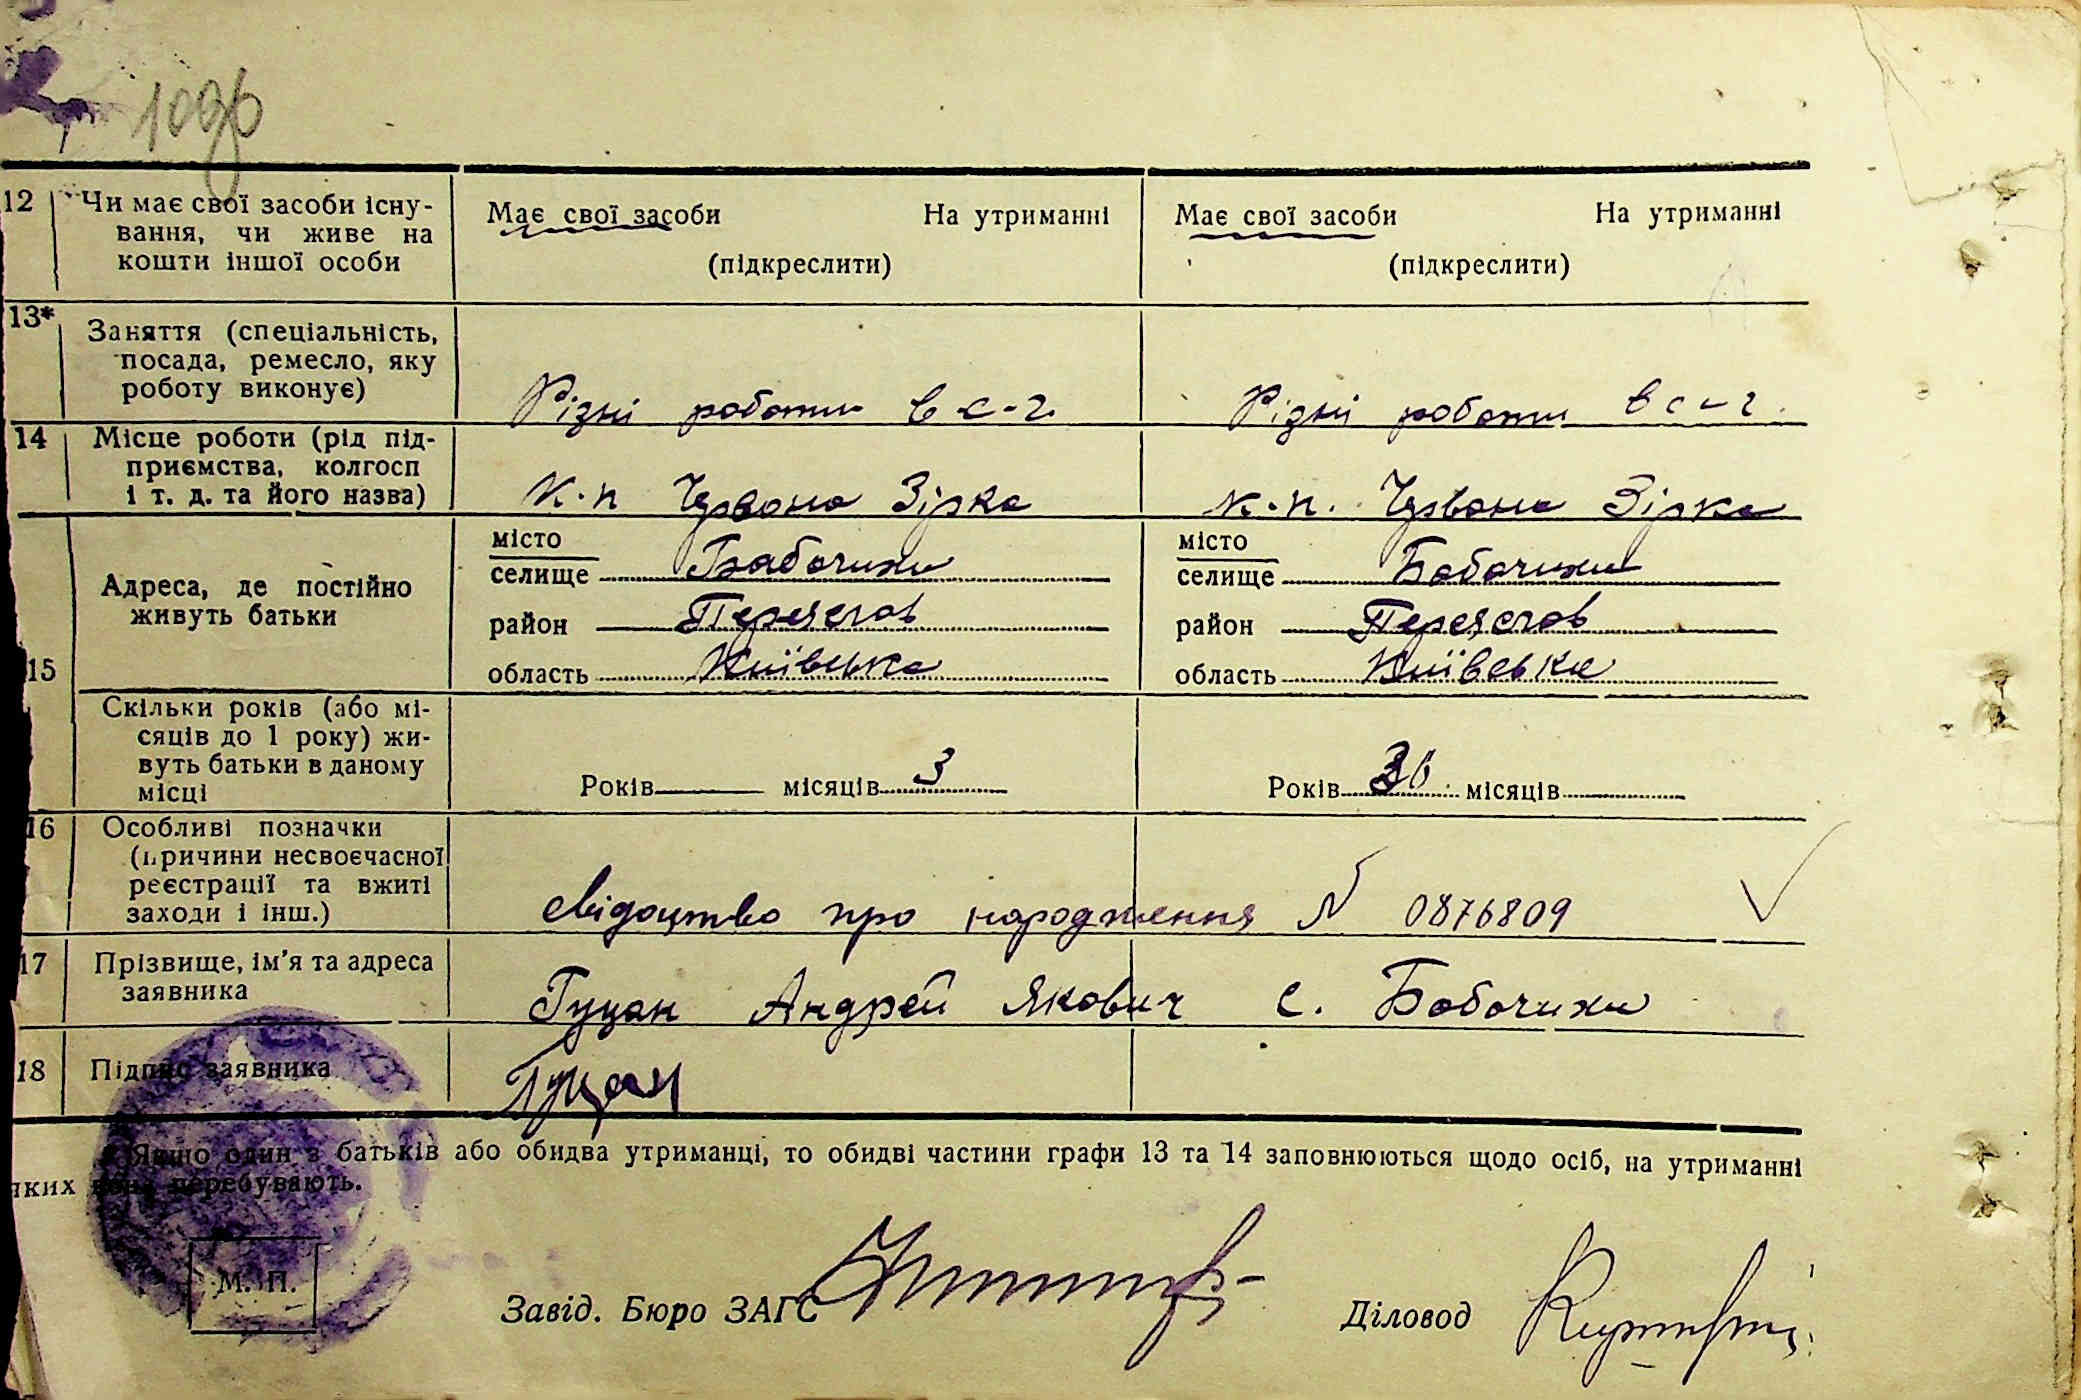 12 Чи має свої засоби існу-
вання, чи живе на
кошти іншої особи
Має свої засоби На утриманні
(підкреслити)
Має свої засоби На утриманні
(підкреслити)
13* Заняття (спеціальність,
посада, ремесло, яку
роботу виконує)
Різні роботи в с-г.
Різні роботи в с-г.
14 Місце роботи (рід під-
приємства, колгосп
і т. д. та його назва)
К-п Червона Зірка
к-п. Червона Зірка
15 Адреса, де постійно
живуть батьки
місто
селище Бабочихи
район Переяслов
область Київська
місто
селище Бобочихи
район Переяслов
область Київська
Скільки років (або мі-
сяців до 1 року) жи-
вуть батьки в даному
місці
Років місяців 3
Років місяців
16 Особливі позначки
(причини несвоєчасної
реєстрації та вжиті
заходи і інш.)
свідоцтво про народження N 0876809
17 Прізвище, ім'я та адреса
заявника
Гуцан Андрей Якович с. Бобочихи
18 Підпис заявника
Гуцан
* Якщо один з батьків або обидва утриманці, то обидві частини графи 13 та 14 заповнюються щодо осіб, на утриманні
яких вони перебувають.
М. П.
Завід. Бюро ЗАГС Діловод